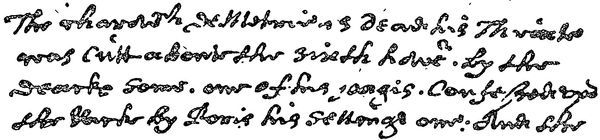 The charowich demetrie is dead his Throate
was Cutt aboute the sixth howr. by the
dearke some. one of his pangis. Confessed upō
the Racke by Boris his settenge one: And the